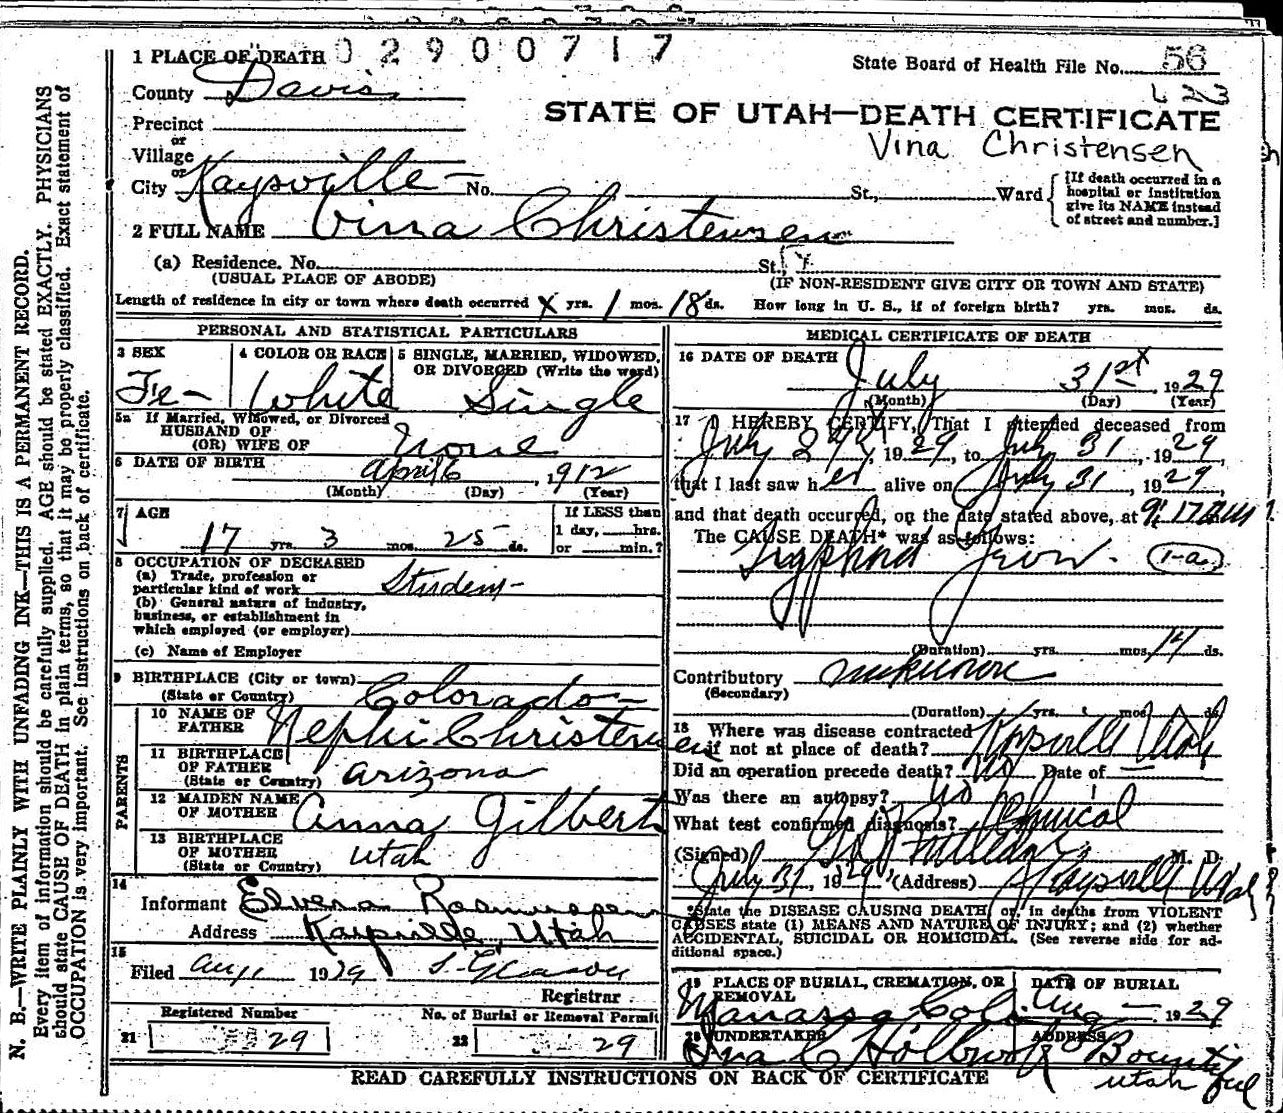 02900717
1 PLACE OF DEATH
State Board of Health File No. 56
County Davis
623
STATE OF UTAH—DEATH CERTIFICATE
Precinct
or
Village
Vina Christensen
or
City Kaysville - No. St., Ward
[If death occurred in a hospital or institution give its NAME instead of street and number.]
2 FULL NAME Vina Christensen
(a) Residence. No. St.,
(USUAL PLACE OF ABODE) (IF NON-RESIDENT GIVE CITY OR TOWN AND STATE)
Length of residence in city or town where death occurred x yrs. 1 mos. 18 ds. How long in U. S., if of foreign birth? yrs. mos. ds.
PERSONAL AND STATISTICAL PARTICULARS
3 SEX Fe-
4 COLOR OR RACE White
5 SINGLE, MARRIED, WIDOWED, OR DIVORCED (Write the word) Single
5a If Married, Widowed, or Divorced
HUSBAND OF
(OR) WIFE OF None
6 DATE OF BIRTH April 6, 1912
(Month) (Day) (Year)
7 AGE
17 yrs. 3 mos. 25 ds.
If LESS than
1 day, hrs.
or min.?
8 OCCUPATION OF DECEASED
(a) Trade, profession or
particular kind of work Student
(b) General nature of industry,
business, or establishment in
which employed (or employer)
(c) Name of Employer
9 BIRTHPLACE (City or town)
(State or Country) Colorado
PARENTS
10 NAME OF FATHER Nephi Christensen
11 BIRTHPLACE OF FATHER (State or Country) Arizona
12 MAIDEN NAME OF MOTHER Anna Gilbert
13 BIRTHPLACE OF MOTHER (State or Country) Utah
14
Informant Elvera Rasmussen
Address Kaysville, Utah
15
Filed Aug 1 1929 S. Gleason
Registrar
Registered Number No. of Burial or Removal Permit
21 29 22 29
MEDICAL CERTIFICATE OF DEATH
16 DATE OF DEATH
July 31st x 1929
(Month) (Day) (Year)
17 I HEREBY CERTIFY, That I attended deceased from
July 27, 1929, to July 31, 1929,
that I last saw her alive on July 31, 1929,
and that death occurred, on the date stated above, at 9:17 am.
The CAUSE DEATH* was as follows:
Typhoid Fever. 1-a
(Duration) yrs. mos. 14 ds.
Contributory unknown
(Secondary)
(Duration) yrs. mos. ds.
18 Where was disease contracted
if not at place of death? Kaysville Utah
Did an operation precede death? No Date of —
Was there an autopsy? No
What test confirmed diagnosis? Clinical
(Signed) M. D.
July 31, 1929, (Address) Kaysville Utah
*State the DISEASE CAUSING DEATH, or, in deaths from VIOLENT
CAUSES state (1) MEANS AND NATURE OF INJURY; and (2) whether
ACCIDENTAL, SUICIDAL OR HOMICIDAL. (See reverse side for additional space.)
19 PLACE OF BURIAL, CREMATION, OR REMOVAL Manassa Colo
DATE OF BURIAL Aug — 1929
20 UNDERTAKER Ira C Holbrook
ADDRESS Bountiful Utah
READ CAREFULLY INSTRUCTIONS ON BACK OF CERTIFICATE
N. B.—WRITE PLAINLY WITH UNFADING INK—THIS IS A PERMANENT RECORD.
Every item of information should be carefully supplied. AGE should be stated EXACTLY. PHYSICIANS
should state CAUSE OF DEATH in plain terms, so that it may be properly classified. Exact statement of
OCCUPATION is very important. See instructions on back of certificate.